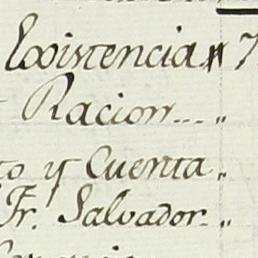 Existencia # 7
Racion... "
to y Cuenta "
Fr. Salvador.. "